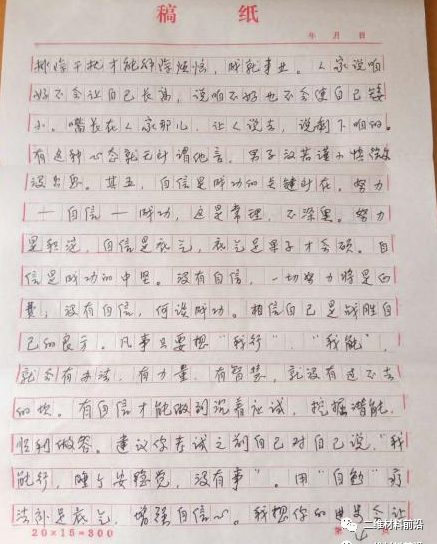 稿 纸
年 月 日
排除干扰才能解除烦恼，成就事业。人家说咱
好不会让自己长高，说咱不好也不会使自己矮
小。嘴长在人家那儿，让人说去，说剩下咱的。
有这种心态就无计谓他言。男子汉若谨小慎微
没出息。其五，自信是成功的关键所在。努力
—自信—成功，这是常理，不深奥。努力
是积淀，自信是底气，底气足果子才会硕。自
信是成功的中坚。没有自信，一切努力将是白
费，没有自信，何谈成功。相信自己是战胜自
己的良方。凡事只要想“我行”、“我能”，
就会有办法，有力量，有智慧，就没有过不去
的坎。有自信才能做到沉着应试，挖掘潜能，
胜利做答。建议你考试之前自己对自己说“我
能行，睡个安稳觉，没有事”。用“自勉”疗
法补足底气，增强自信心。我想你的
20×15=300
二维材料前沿